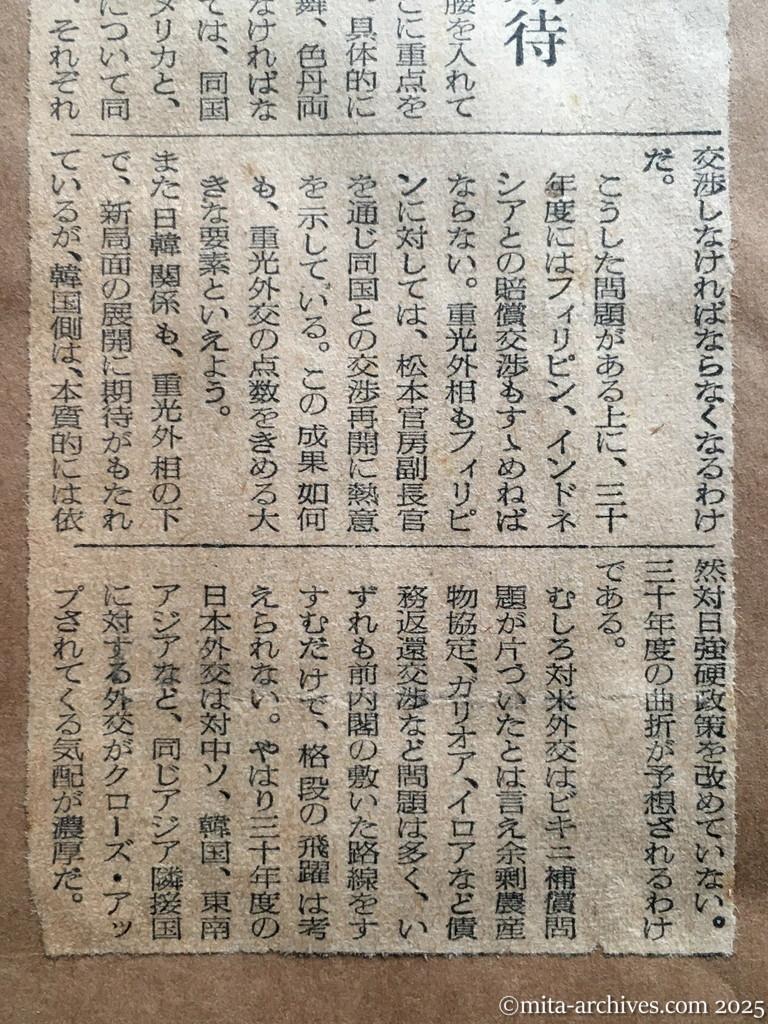 待
腰を入れて
こに重点を
。具体的に
舞、色丹両
なければな
ては、同国
メリカと、
について同
、それぞれ
交渉しなければならなくなるわけ
だ。
こうした問題がある上に、三十
年度にはフィリピン、インドネ
シアとの賠償交渉もすゝめねば
ならない。重光外相もフィリピ
ンに対しては、松本官房副長官
を通じ同国との交渉再開に熱意
を示している。この成果如何
も、重光外交の点数をきめる大
きな要素といえよう。
また日韓関係も、重光外相の下
で、新局面の展開に期待がもたれ
ているが、韓国側は、本質的には依
然対日強硬政策を改めていない。
三十年度の曲折が予想されるわけ
である。
むしろ対米外交はビキニ補償問
題が片づいたとは言え余剰農産
物協定、ガリオア、イロアなど債
務返還交渉など問題は多く、い
ずれも前内閣の敷いた路線をす
すむだけで、格段の飛躍は考
えられない。やはり三十年度の
日本外交は対中ソ、韓国、東南
アジアなど、同じアジア隣接国
に対する外交がクローズ・アッ
プされてくる気配が濃厚だ。
©mita-archives.com 2025